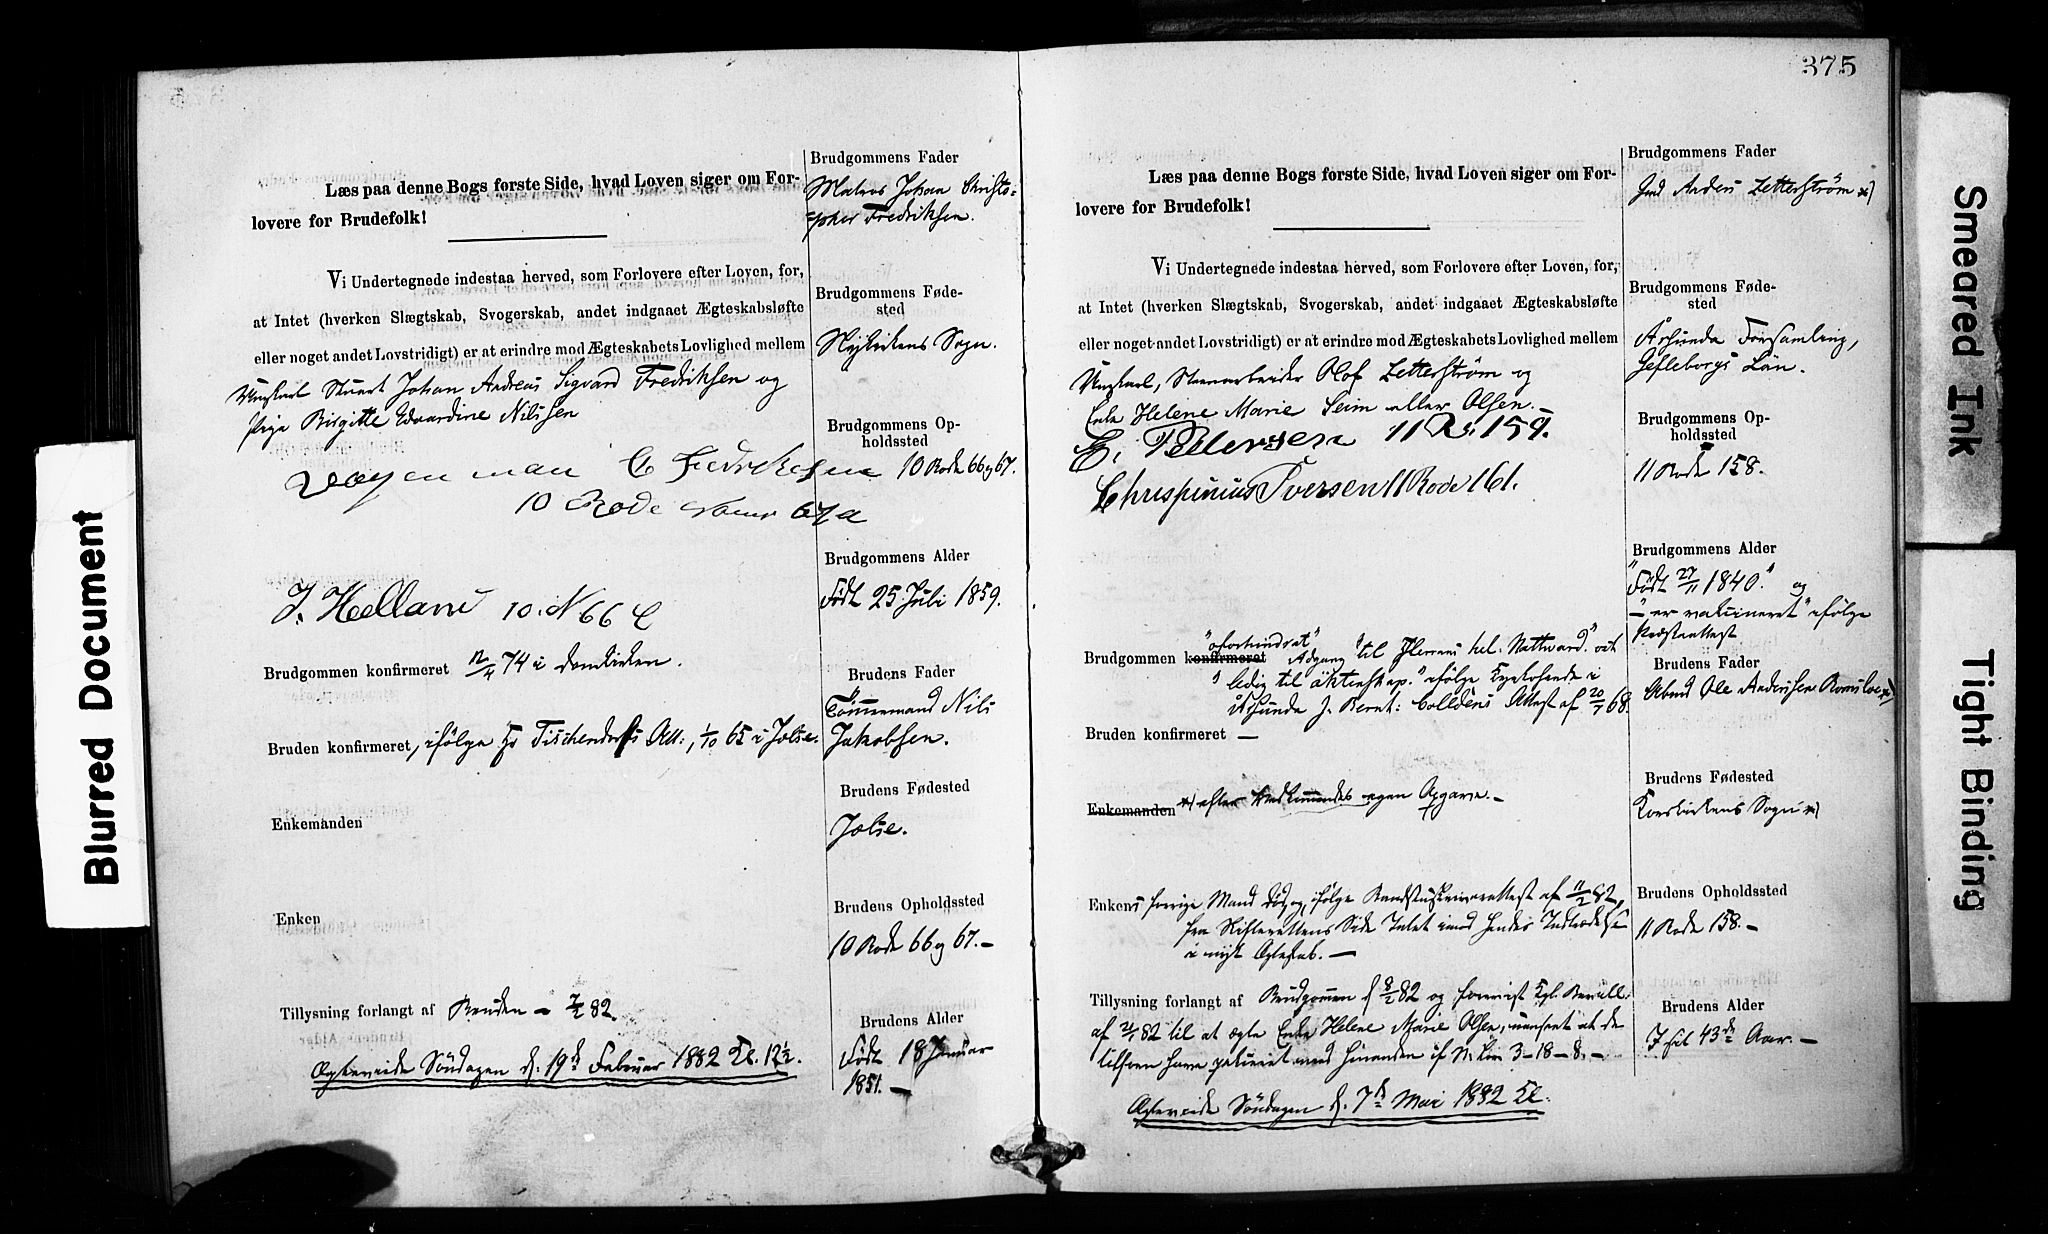 375
Læs paa denne Bogs første Side, hvad Loven siger om For-
lovere for Brudefolk!
Vi Undertegnede indestaa herved, som Forlovere efter Loven, for,
at Intet (hverken Slægtskab, Svogerskab, andet indgaaet Ægteskabsløfte
eller noget andet Lovstridigt) er at erindre mod Ægteskabets Lovlighed mellem
Ungkarl Stuert Johan Andreas Sigvard Fredriksen og
Pige Birgitte Edvardine Nilssen
10 Rode 67 a
J. Helland 10. N 66
Brudgommen konfirmeret 12/4 74 i Domkirken.
Bruden konfirmeret, ifølge Tischendorfs Att:, 1/10 65 i Jølse.
Enkemanden
Enken
Tillysning forlangt af Bruden - 7/2 82.
Ægteveide Söndagen d. 19de Februar 1882 Kl. 12½.
Brudgommens Fader
Matros Johan Christo-
=pher Fredriksen.
Brudgommens Føde-
sted
Nykirkens Sogn.
Brudgommens Op-
holdssted
10 Rode 66 og 67.
Brudgommens Alder
Født 25 Juli 1859.
Brudens Fader
Tömmermand Nils
Jakobsen.
Brudens Fødested
Jølse.
Brudens Opholdssted
10 Rode 66 og 67. -
Brudens Alder
Født 18 Januar
1851. -
Læs paa denne Bogs første Side, hvad Loven siger om For-
lovere for Brudefolk!
Vi Undertegnede indestaa herved, som Forlovere efter Loven, for,
at Intet (hverken Slægtskab, Svogerskab, andet indgaaet Ægteskabsløfte
eller noget andet Lovstridigt) er at erindre mod Ægteskabets Lovlighed mellem
Ungkarl, Stenarbeider Olof Zetterström og
Enke Helene Marie Seim eller Olsen. -
E. Pettersen 11 R. 159.
Chrispinius Iversen 11 Rode 161.
"oforhindrat"
Brudgommen konfirmeret Adgang "til Herrens hel. Nattvard" och
"ledig til äktenskap." ifølge Kyrkoherde i
Årsunda J. Bernt: Colldéns Attest af 20/7 68.
Bruden konfirmeret -
Enkemanden *) efter Vedkommendes egen Opgave. -
Enkens forrige Mand død og, ifølge Attest af 11/2 82,
fra Skifterettens Side Intet imod hendes Indtrædelse
i nyt Ægteskab. -
Tillysning forlangt af Brudgommen d 8/2 82 og forevist Kgl. Bevill.
af 21/4 82 til at ægte Enke Helene Marie Olsen, uanseet at de
tilforn have været med hinanden if N. Lov 3-18-8. -
Ægteveide Söndagen d. 7de Mai 1882 Kl.
Brudgommens Fader
Gmd Anders Zetterström *)
Brudgommens Føde-
sted
Årsunda Församling,
Gefleborgs Län.
Brudgommens Op-
holdssted
11 Rode 158.
Brudgommens Alder
"Født 27/11 1840." og
"- er vakcineret" ifølge
Præsteattest
Brudens Fader
Arbmd Ole Andersen *)
Brudens Fødested
Korskirkens Sogn *)
Brudens Opholdssted
11 Rode 158. -
Brudens Alder
I sit 43de Aar. -
Blurred Document
Smeared Ink
Tight Binding